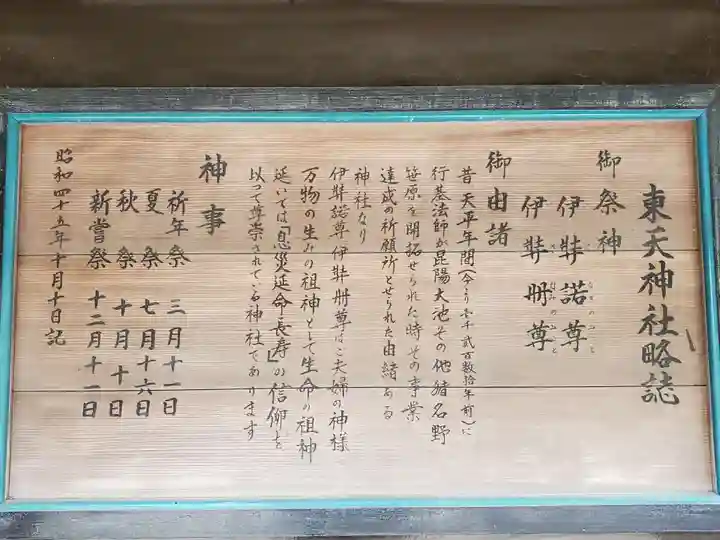 東天神社略誌
御祭神
伊弉諾尊
伊弉册尊
御由諸
昔天平年間(今より壱千弐百数拾年前)に
行基法師が昆陽大池その他猪名野
笹原を開拓せられた時その事業
達成の祈願所とせられた由緒ある
神社なり
伊弉諾尊伊弉册尊はご夫婦の神様
万物の生みの祖神として生命の祖神
延いては「息災延命と長寿」の信仰を
以って尊崇されている神社であります
神事
祈年祭 三月十一日
夏祭 七月十六日
秋祭 十月十日
新嘗祭 十二月十一日
昭和四十五年十月十日記